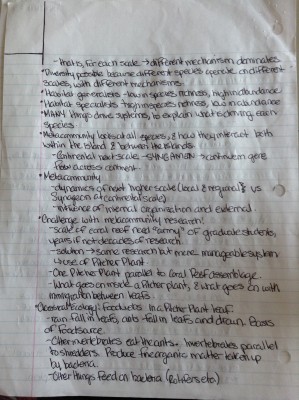 - that is, for each scale → different mechanism dominates.
*Diversity possible because different species operate on different
scales, with different mechanisms.
*Habitat generalists - low in species richness, high in abundance
*Habitat specialists - high in species richness, low in abundance
*MANY things drive systems, to explain what's driving each
species.
*Metacommunity looks at all species, & how they interact both
within the island & between the islands.
- Continental next scale - SYNGAMEON → continuous gene
flow across continent.
*Metacommunity
- dynamics of next higher scale (local & regional) vs
Syngameon (continental scale)
- influence of internal organization and external.
*Challenge with metacommunity research:
- scale of coral reef need "army" of graduate students,
years if not decades of research.
- solution → same research but more manageable system
↳ use of Pitcher Plant
- One Pitcher Plant parallel to Coral Reef assemblage.
- What goes on inside a Pitcher plant, & what goes on with
immigration between leafs.
*General Ecology: Food webs in a Pitcher Plant leaf.
- rain fall in leafs, ants - fall in leafs and drown. Bases
of food source
- Other invertebrates eat the ants. Invertebrates parallel
to shredders. Produce fine organic matter taken up
by bacteria.
- Other things feed on bacteria (Rotifers etc)